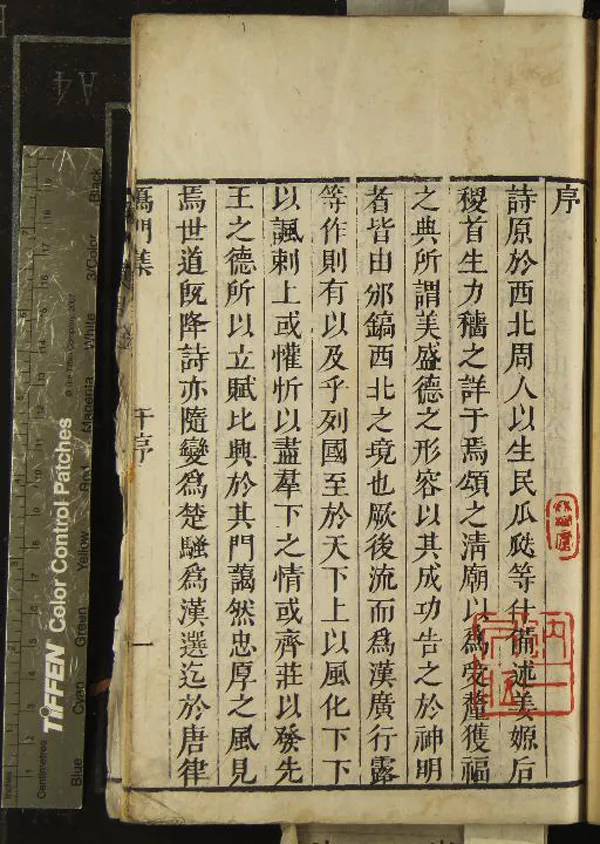 序
詩原於西北周人以生民瓜瓞等什備述姜嫄后
稷首生力穡之詳于焉頌之淸廟以爲受釐獲福
之典所謂美盛德之形容以其成功告之於神明
者皆由邠鎬西北之境也厥後流而爲漢廣行露
等作則有以及乎列國至於天下上以風化下下
以諷刺上或懽忻以盡羣下之情或齊莊以發先
王之德所以立賦比興於其門藹然忠厚之風見
焉世道旣降詩亦隨變爲楚騷爲漢選迄於唐律
鴈門集
干序
一
TIFFEN Color Control Patches
© The Tiffen Company, 2007
Centimetres
Inches
Blue
Cyan
Green
Yellow
Red
Magenta
White
3/Color
Black
A4